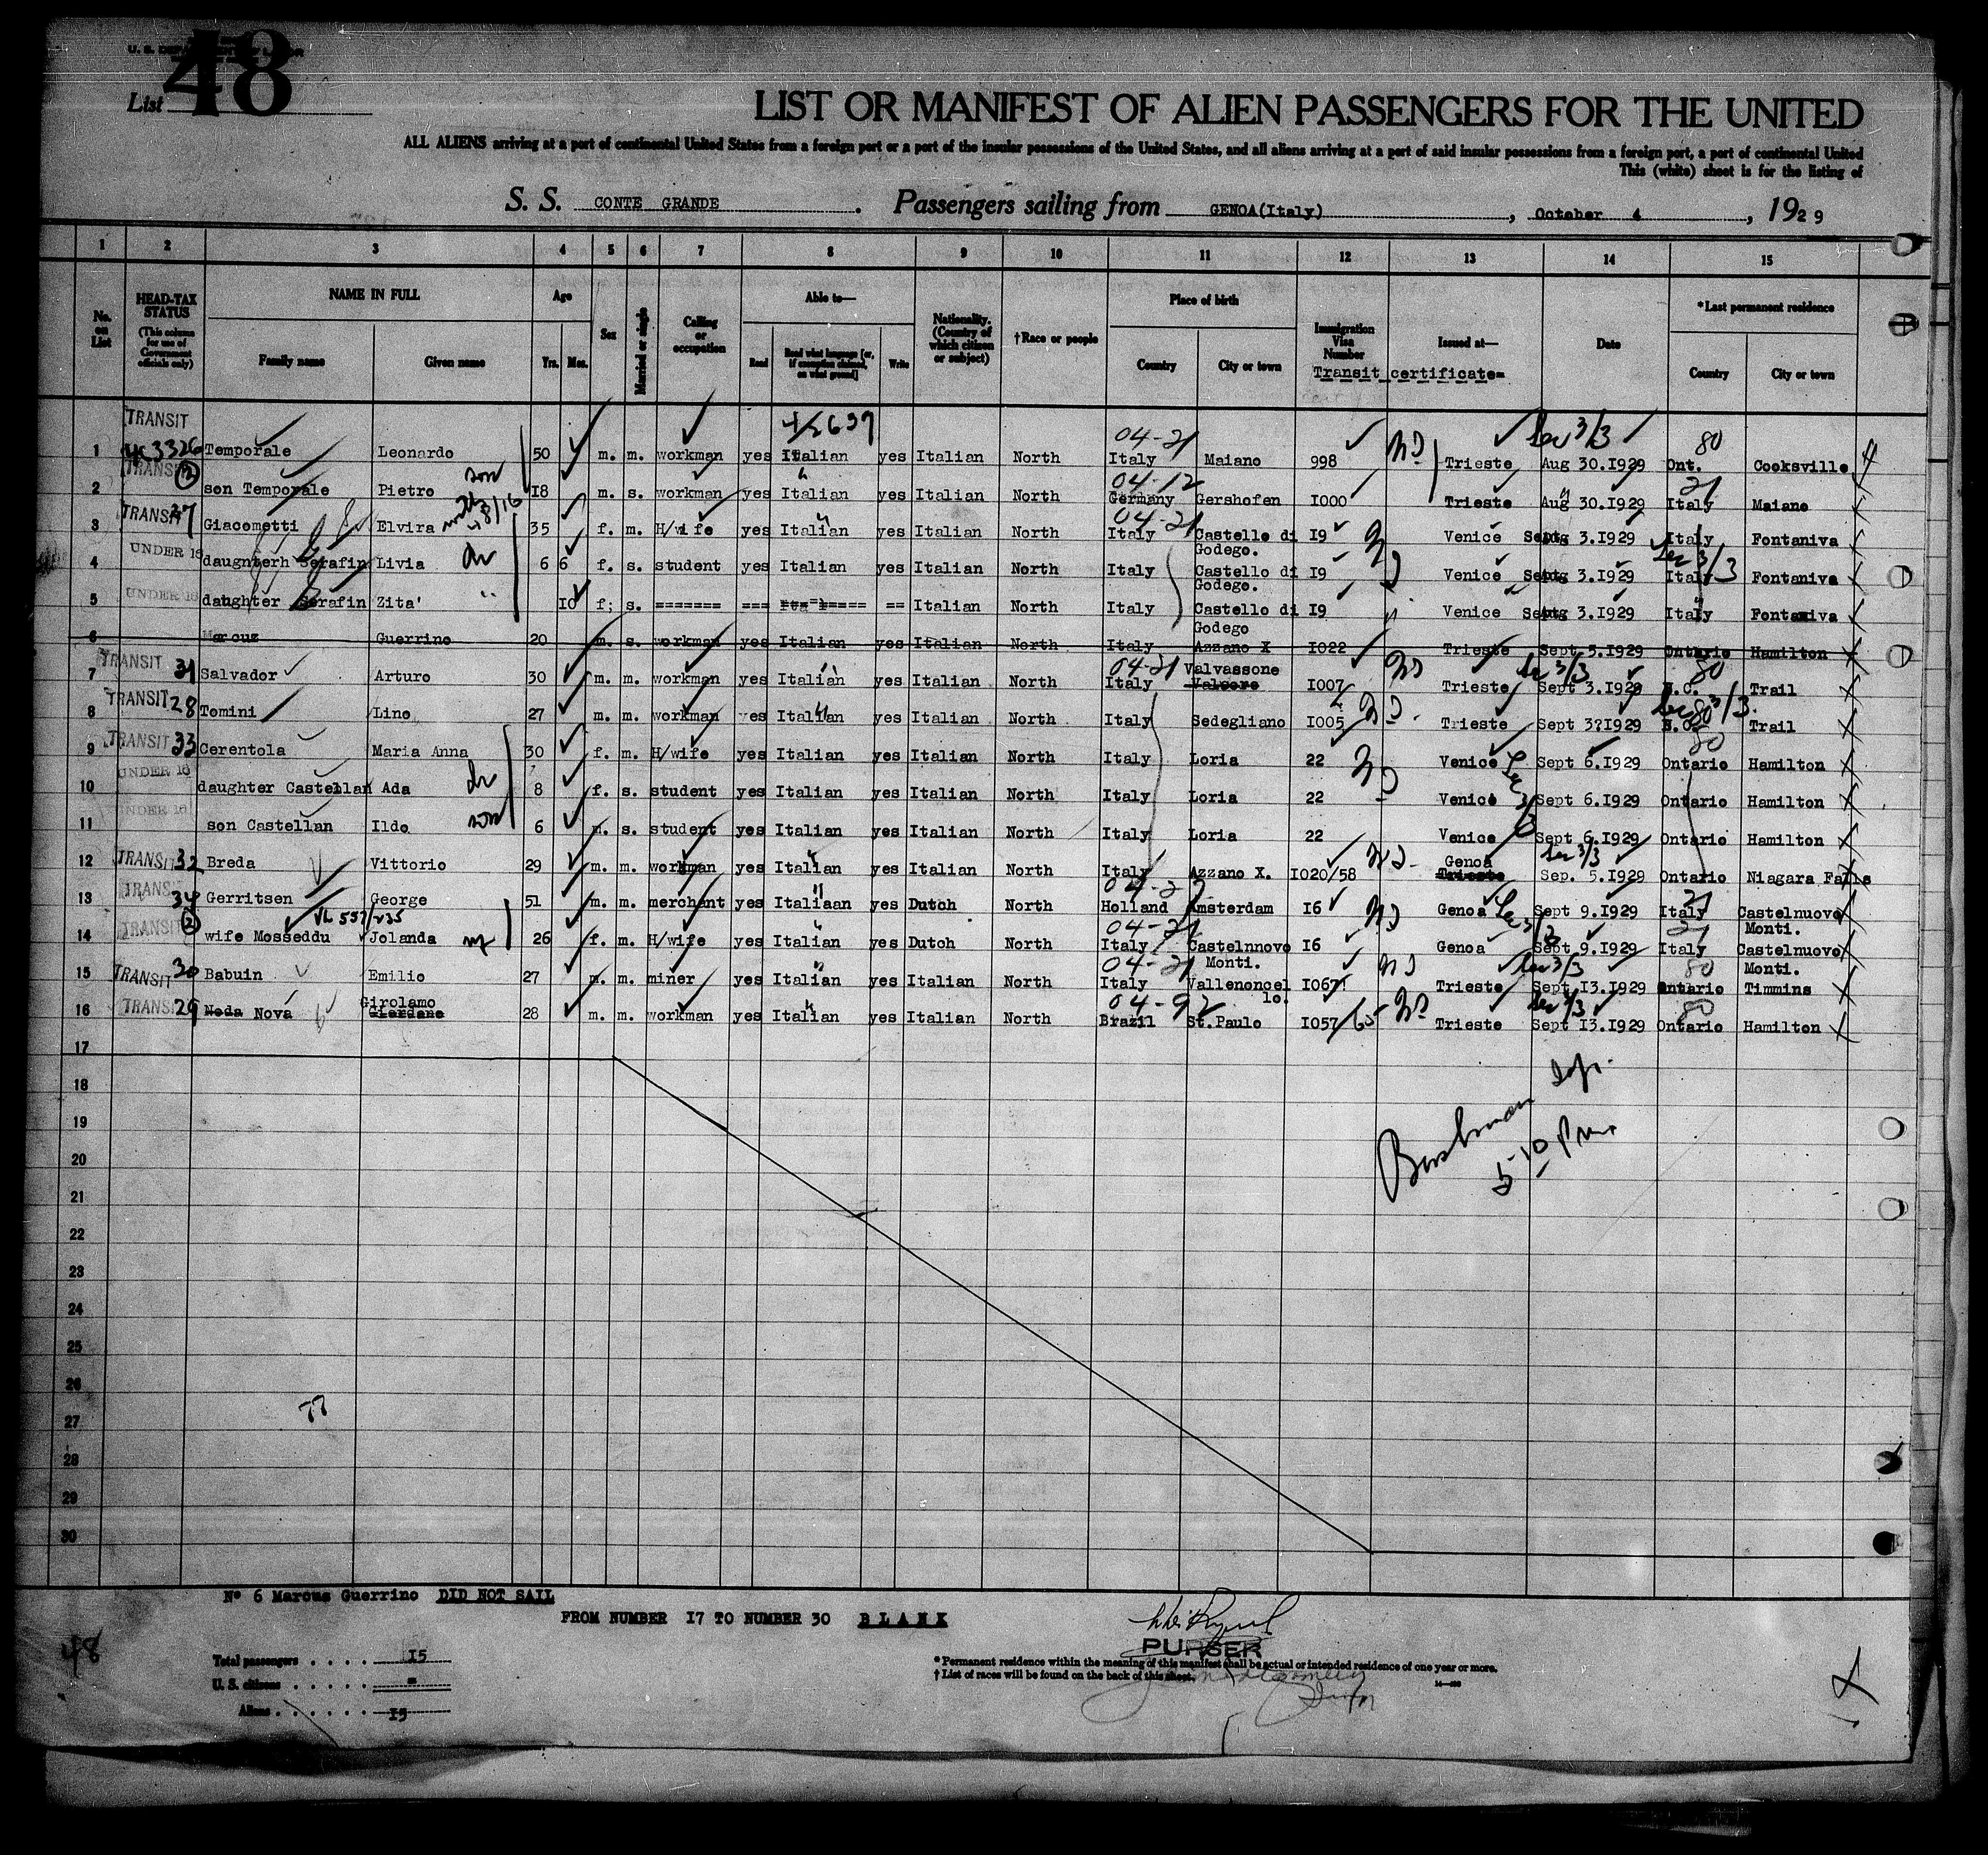 U. S. DEP
List 48
LIST OR MANIFEST OF ALIEN PASSENGERS FOR THE UNITED
ALL ALIENS arriving at a port of continental United States from a foreign port or a port of the insular possessions of the United States, and all aliens arriving at a port of said insular possessions from a foreign port, a port of continental United
This (white) sheet is for the listing of
S. S. CONTE GRANDE. Passengers sailing from GENOA(Italy), October 4, 1929
1 2 3 4 5 6 7 8 9 10 11 12 13 14 15
No. on List
HEAD-TAX STATUS (This column for use of Government officials only)
NAME IN FULL
Family name Given name
Age
Yrs. Mos.
Sex
Married or single
Calling or occupation
Able to—
Read Read what language [or, if exemption claimed, on what ground] Write
Nationality. (Country of which citizen or subject)
†Race or people
Place of birth
Country City or town
Immigration Visa Number
Transit certificate
Issued at—
Date
*Last permanent residence
Country City or town
1 TRANSIT Temporale Leonardo 50 m. m. workman yes Italian yes Italian North 04-21 Italy Maiano 998 Trieste Aug 30.I929 80 Ont. Cooksville
2 TRANSIT son Temporale Pietro son I8 m. s. workman yes Italian yes Italian North 04-12 Germany Gershofen I000 Trieste Aug 30.I929 21 Italy Maiano
3 TRANSIT 27 Giacometti Elvira 35 f. m. H/wife yes Italian yes Italian North 04-21 Italy Castello di Godego. I9 Venice Sept 3.I929 Italy Fontaniva
4 UNDER 16 daugnterh Serafin Livia 6 6 f. s. student yes Italian yes Italian North Italy Castello di Godego. I9 Venice Sept 3.I929 Italy Fontaniva
5 UNDER 16 daughter Serafin Zita' I0 f; s. ======= === == Italian North Italy Castello di Godego I9 Venice Sept 3.I929 Italy Fontaniva
6 Marcuz Guerrino 20 m. s. workman yes Italian yes Italian North Italy Azzano X I022 Trieste Sept 5.I929 Ontario Hamilton
7 TRANSIT 31 Salvador Arturo 30 m. m. workman yes Italian yes Italian North 04-21 Italy Valvassone I007 Trieste Sept 3.I929 80 Trail
8 TRANSIT 28 Tomini Lino 27 m. m. workman yes Italian yes Italian North Italy Sedegliano I005 Trieste Sept 3?I929 80 Trail
9 TRANSIT 33 Cerentola Maria Anna 30 f. m. H/wife yes Italian yes Italian North Italy Loria 22 Venice Sept 6.I929 80 Ontario Hamilton
10 UNDER 16 daughter Castellan Ada 8 f. s. student yes Italian yes Italian North Italy Loria 22 Venice Sept 6.I929 Ontario Hamilton
11 UNDER 16 son Castellan Ildo son 6 m. s. student yes Italian yes Italian North Italy Loria 22 Venice Sept 6.I929 Ontario Hamilton
12 TRANSIT 32 Breda Vittorio 29 m. m. workman yes Italian yes Italian North Italy Azzano X. I020/58 Genoa Trieste Sep. 5.I929 Ontario Niagara Falls
13 TRANSIT 34 Gerritsen George 51 m. m. merchant yes Italiaan yes Dutch North Holland Amsterdam I6 Genoa Sept 9.I929 21 Italy Castelnuovo Monti.
14 wife Mosseddu Jolanda 26 f. m. H/wife yes Italian yes Dutch North 04-21 Italy Castelnnovo Monti. I6 Genoa Sept 9.I929 Italy Castelnuovo Monti.
15 TRANSIT 30 Babuin Emilio 27 m. m. miner yes Italian yes Italian North 04-21 Italy Vallenoncello. I067 Trieste Sept I3.I929 80 Ontario Timmins
16 TRANSIT 29 Neda Nová Girolamo Giordano 28 m. m. workman yes Italian yes Italian North 04-92 Brazil St.Paulo I057/65 Trieste Sept I3.I929 80 Ontario Hamilton
17
18
19
20
21
22
23
24
25
26
27
28
29
30
5-10 Pm
77
Nº 6 Marcus Guerrino DID NOT SAIL
FROM NUMBER I7 TO NUMBER 30 BLANK
48
PURSER
Total passengers . . . . I5
U. S. citizens . . . . . =
Aliens . . . . . . I5
* Permanent residence within the meaning of this manifest shall be actual or intended residence of one year or more.
† List of races will be found on the back of this sheet.